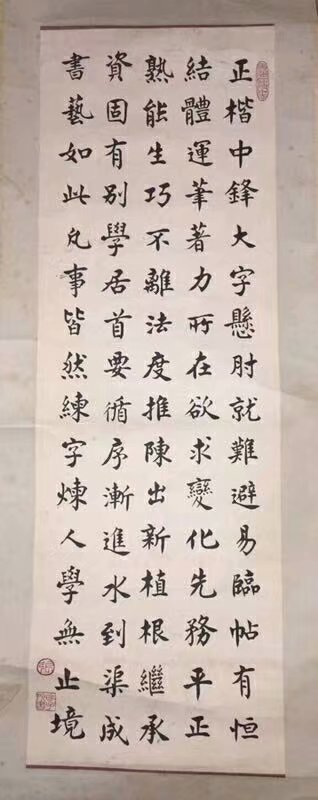 正楷中鋒大字懸肘就難避易臨帖有恒
結體運筆著力所在欲求變化先務平正
熟能生巧不離法度推陳出新植根繼承
資固有别學居首要循序漸進水到渠成
書藝如此凡事皆然練字煉人學無止境